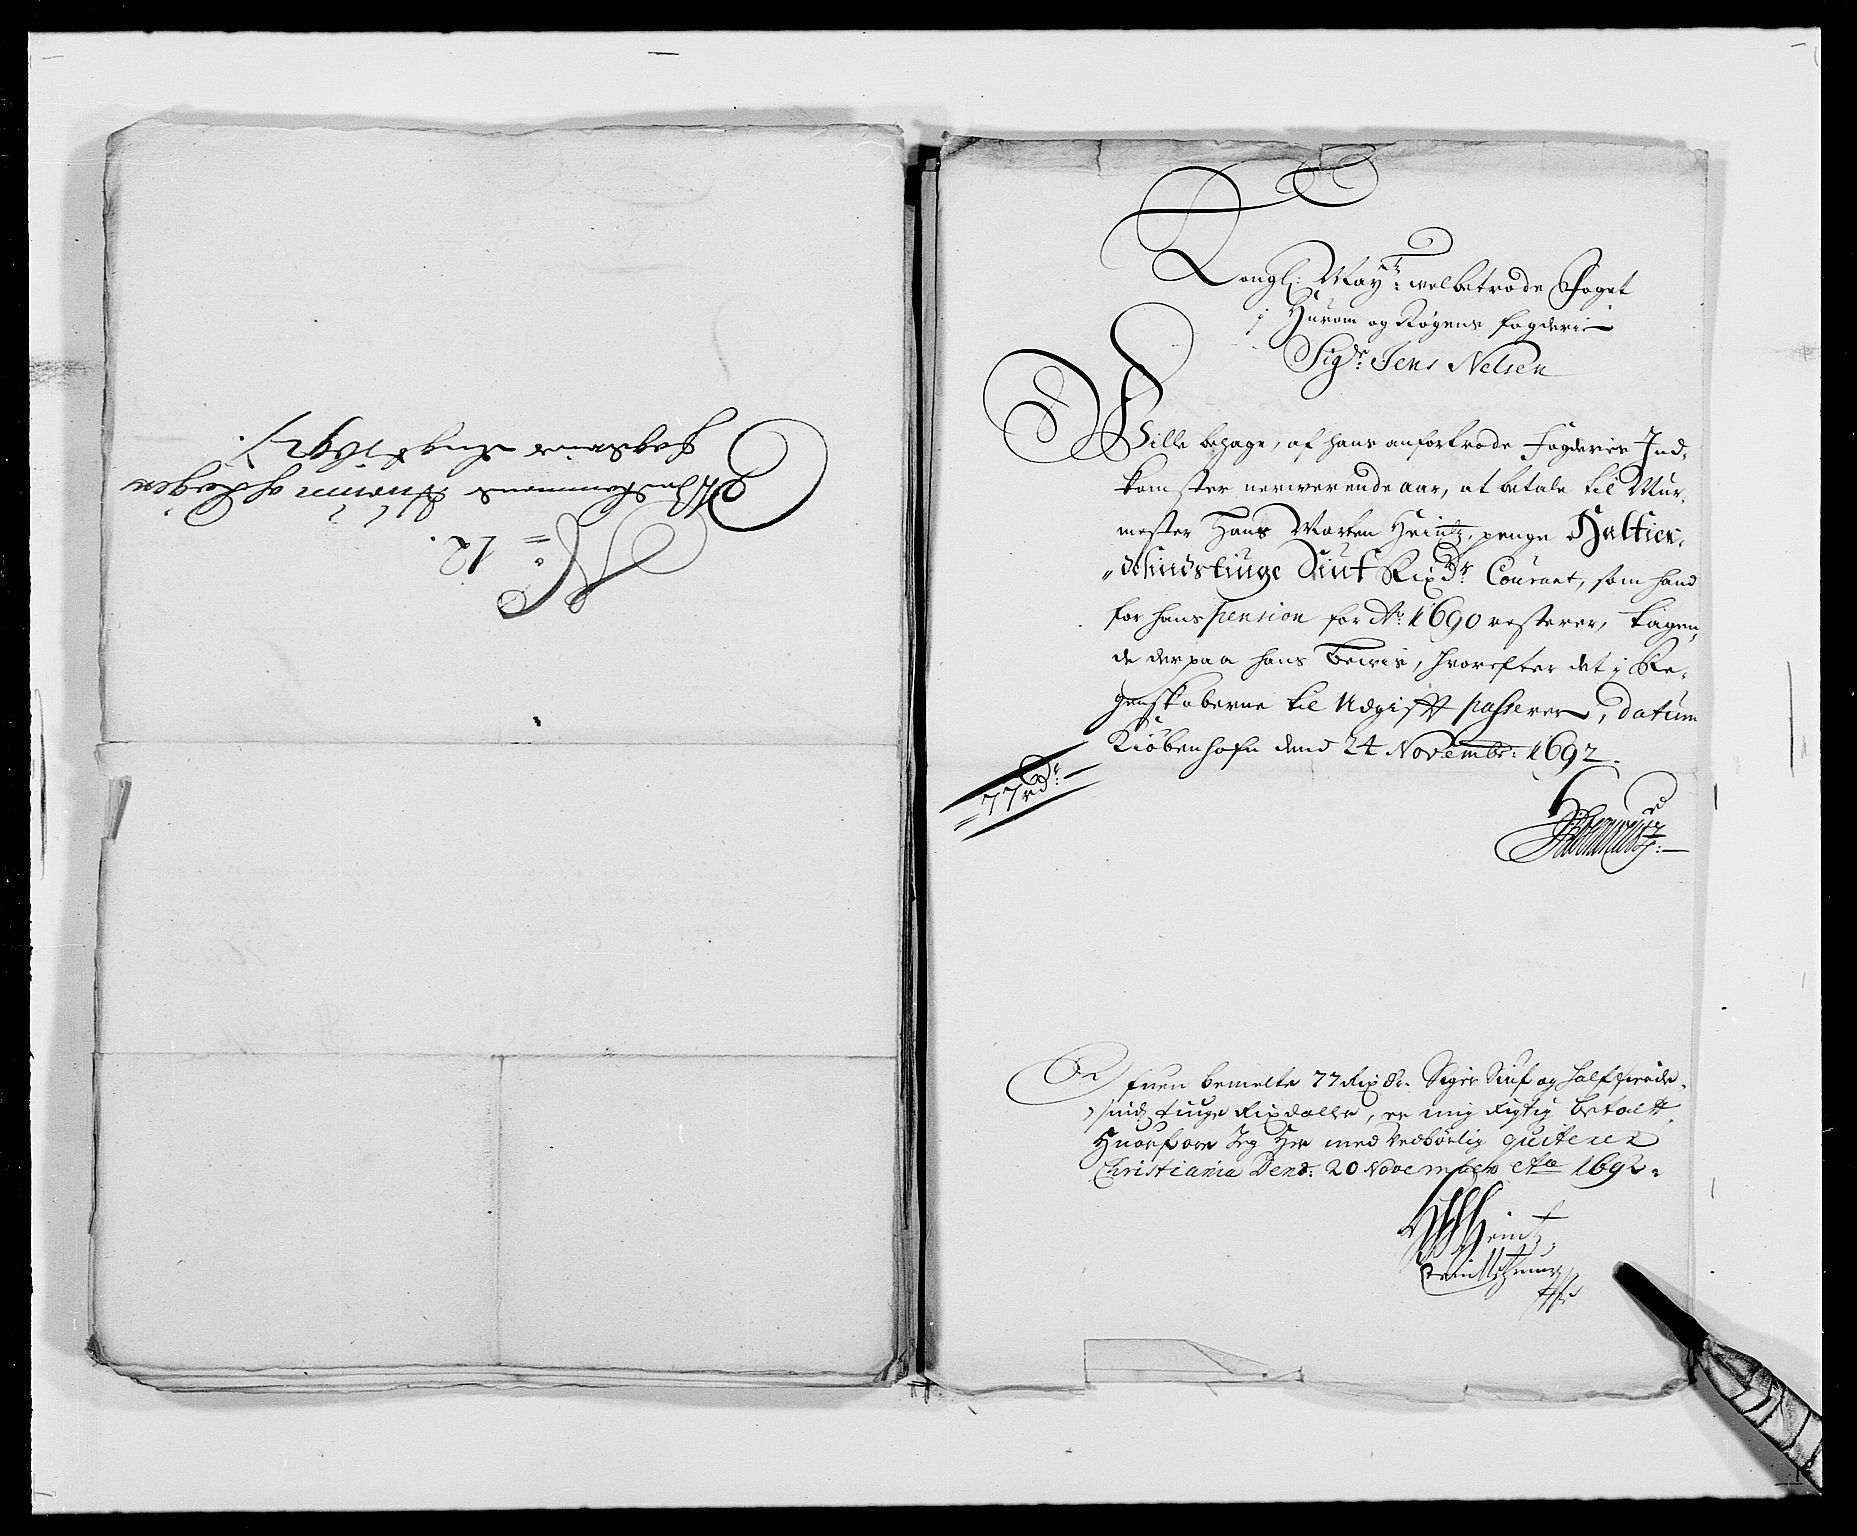 N:o 12.
Fogderies Regnsk 1692
Kongl: Maytz: velbetrode Foget
i Hurom og Røgens fogderie
Sigr: Jens Nelsen
Wille behage, af hans anfortrode Fogderies Ind-
komster nerwerende aar, at betale til Mur-
mester Hans Morten Heintz, penge Halfier-
"dsindstiuge Siuf Rixdr Courant, som hand
for hans pension for Ao: 1690 resterer, tagen-
de derpaa hans Bewis, hvorefter det i Re-
genskaberne til Udgift passerer, datum
Kiøbenhafn dend 24 Novembr: 1692.
77 rdr:
Ofuen bemelte 77 Rixdr. Siger Siuf og halffierde-
sindtz tiuge Rixdaller, er mig Rigtig betalt
Huorfore Jeg Her med tilbørlig quiterer
Christiania Dend: 20 November Ao 1692.
HMHeintz